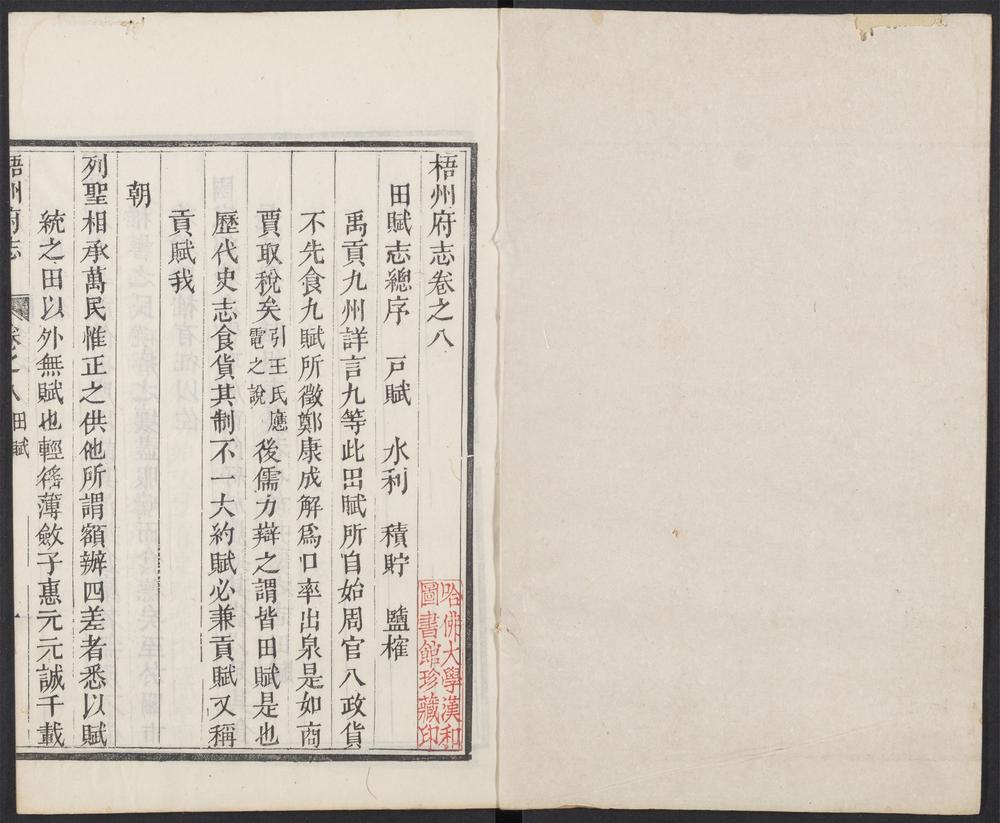 梧州府志卷之八
田賦志總序　戸賦　水利　積貯　鹽榷
禹貢九州詳言九等此田賦所自始周官八政貨
不先食九賦所徵鄭康成解爲口率出泉是如商
賈取稅矣引王氏應電之說後儒力辯之謂皆田賦是也
歷代史志食貨其制不一大約賦必兼貢賦又稱
貢賦我
朝
列聖相承萬民惟正之供他所謂額辦四差者悉以賦
統之田以外無賦也輕徭薄斂子惠元元誠千載
梧州府志　卷之八　田賦　一
哈佛大學漢和
圖書館珍藏印